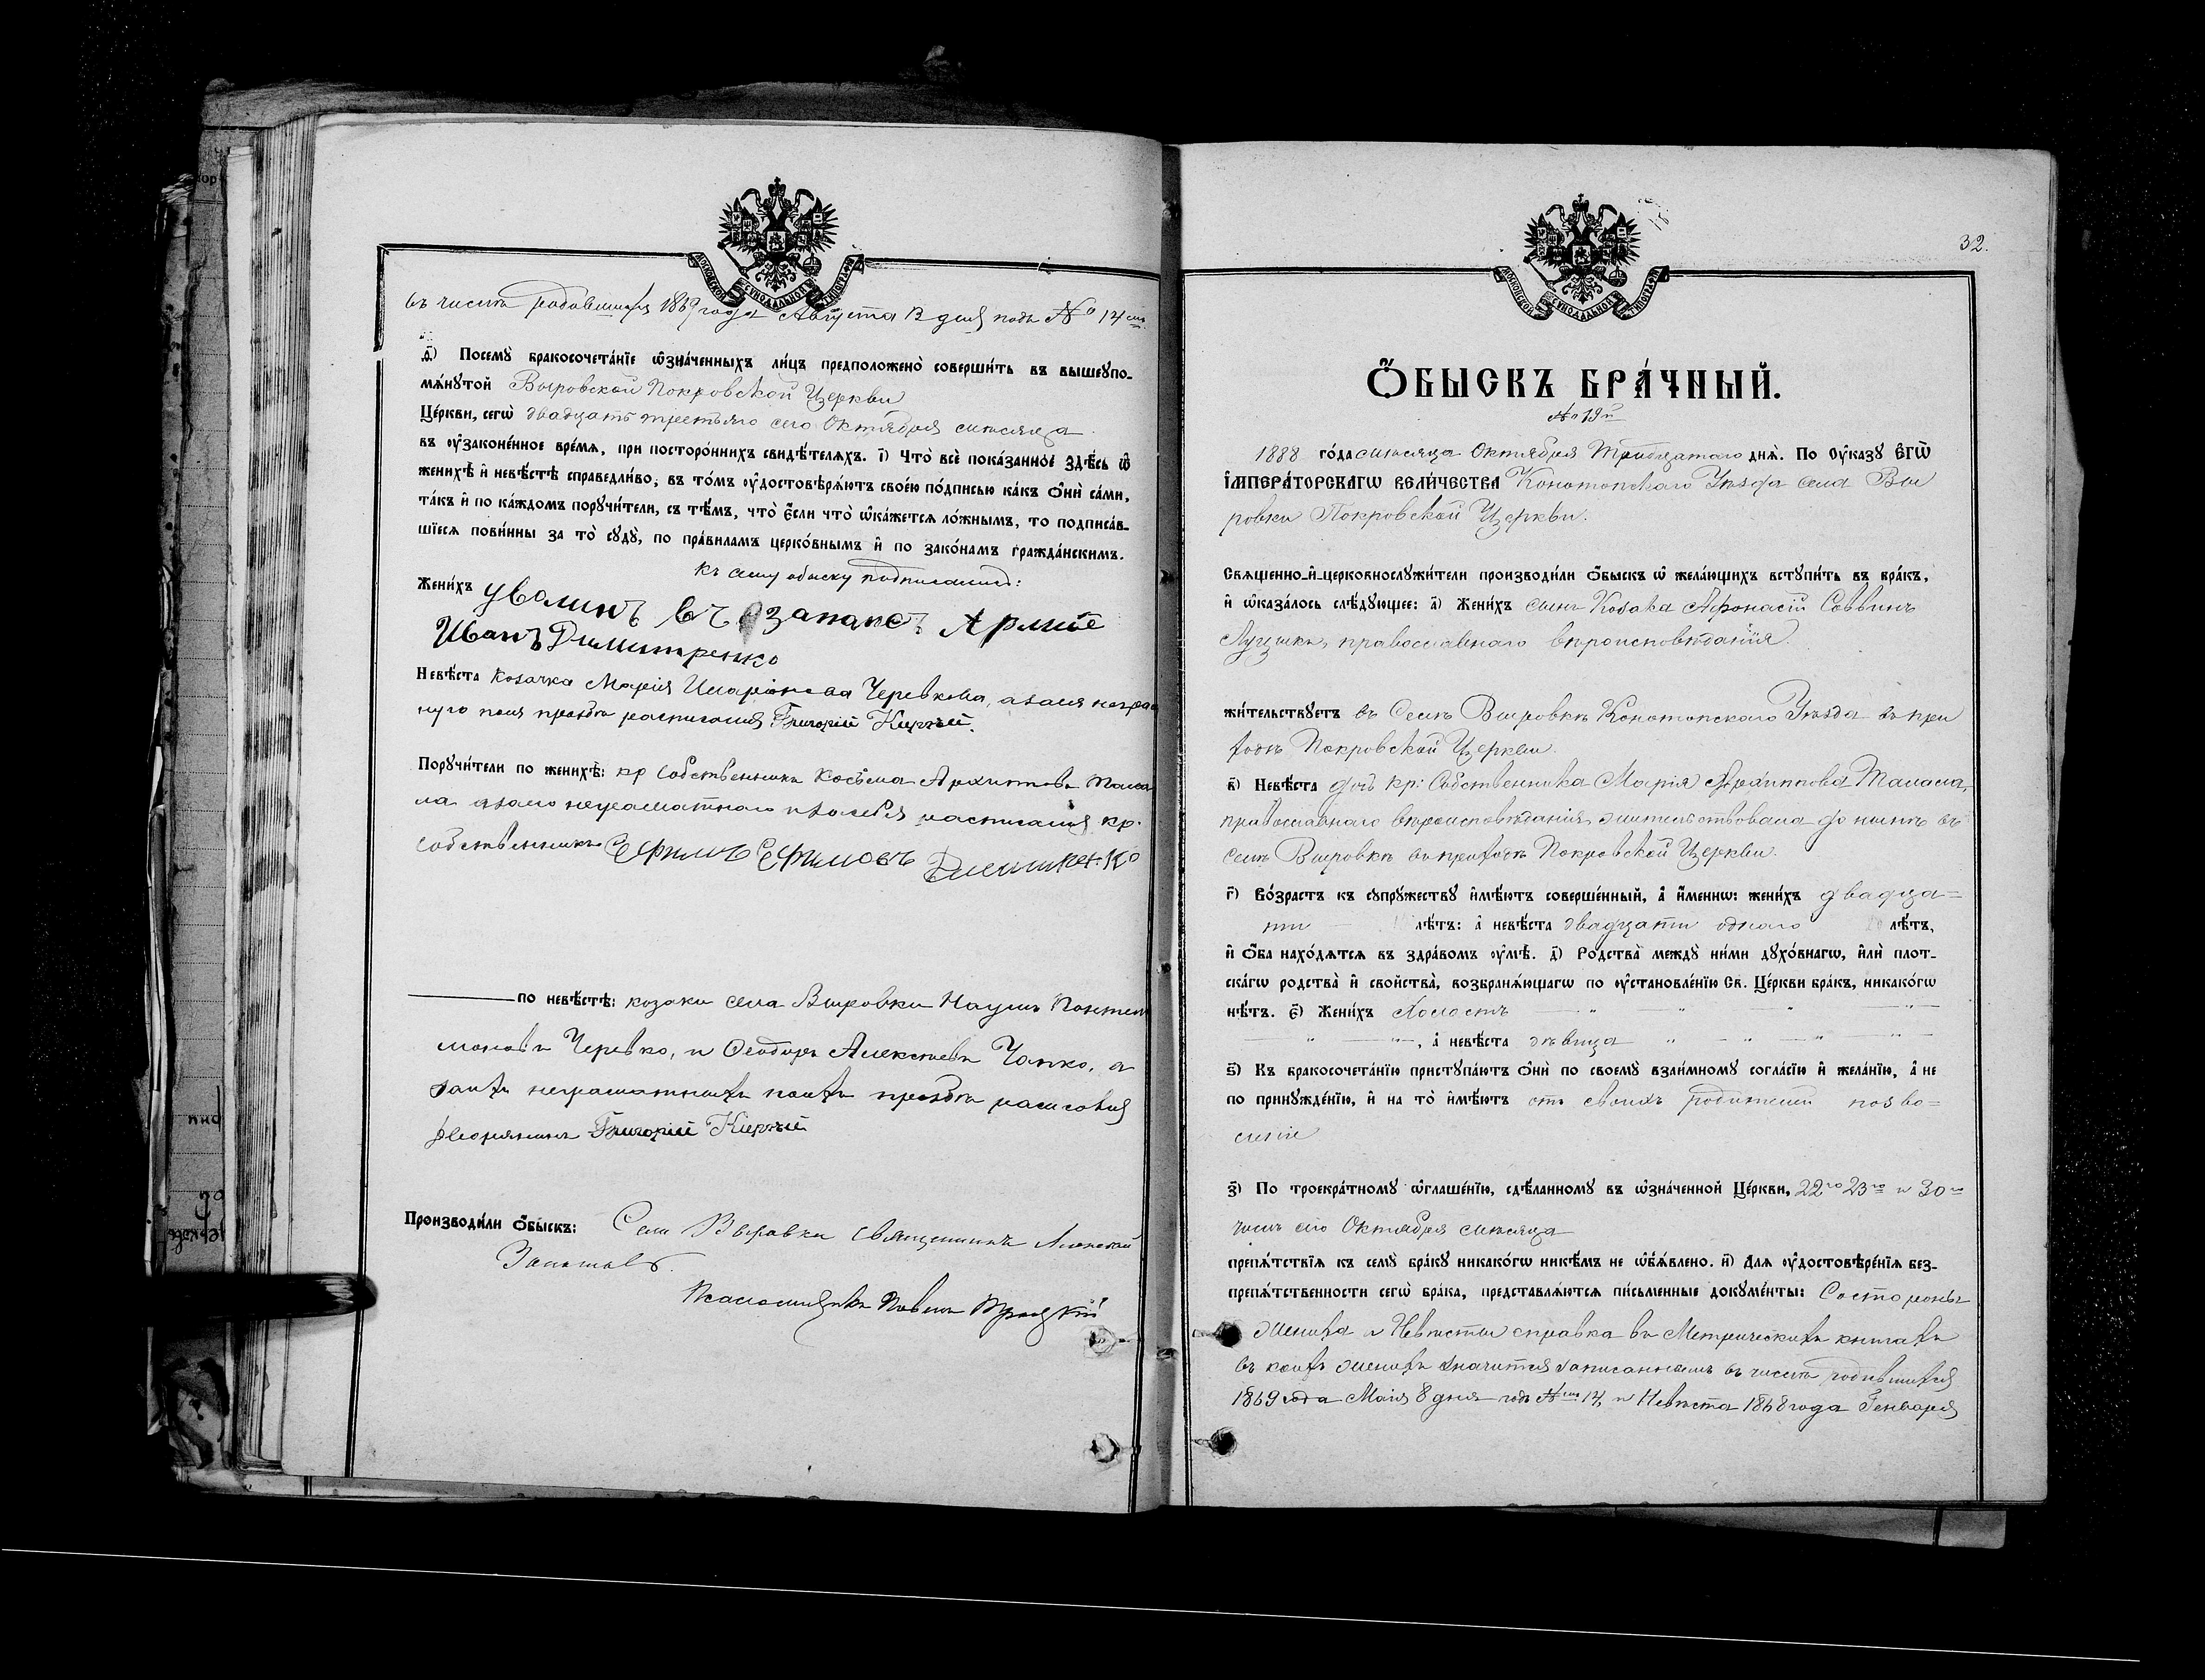 въ числѣ родившихся 1869 года Августа 12 дня подъ № 14мъ.
МОСКОВСКОЙ СѴНОДАЛЬНОЙ ТИПОГРАФІИ
ѳ҃) Посемꙋ̀ бракосочета́нїе ѡ҆зна́ченныхъ ли́цъ предположено̀ соверши́ть въ вышеꙋпо-
мѧ́нꙋтой Выровской Покровской Церкви
Це́ркви, сегѡ̀ двадцать третьяго сего Октября мѣсяца
въ ᲂу҆законе́нное вре́мѧ, при посторо́ннихъ свидѣ́телѧхъ. і҃) Что̀ всѐ пока́занное здѣ́сь ѡ҆
женихѣ̀ и҆ невѣ́стѣ справедли́во, въ то́мъ ᲂу҆достовѣрѧ́ютъ свое́ю по́дписью ка́къ ѻ҆нѝ са́ми,
та́къ и҆ по ка́ждомъ порꙋчи́тели, съ тѣ́мъ, что̀ є҆́сли что̀ ѡ҆ка́жетсѧ ло́жнымъ, то подписа́в-
шїесѧ пови́нны за то̀ сꙋдꙋ̀, по пра́виламъ церко́внымъ и҆ по зако́намъ гражда́нскимъ.
къ сему обыску подписались:
Жени́хъ уволинъ въ запасъ Арміѣ
Иванъ Димитренко
Невѣ́ста козачка Марія Иларіонова Черевкова, а за нея неграмот
ную по ея просьбѣ росписался Григорій Кирѣй.
Порꙋчи́тели по женихѣ̀: кр собственникъ Косьма Архиповъ Тала
ла а за него неграмотнаго и за себя росписался кр.
собственникъ Єфимъ Єфимовъ Димитренко
по невѣ́стѣ: козаки села Выровки Наумъ Пантели
моновъ Черевко, и Ѳеодоръ Алексѣевъ Чапко, а
за нихъ неграмотныхъ по ихъ просьбѣ росписовался
дворянинъ Григорій Кирѣй
Производи́ли ѻ҆́быскъ: Села Выровки Священникъ Алексѣй
Псаломщикъ Павелъ Троцкій
32.
МОСКОВСКОЙ СѴНОДАЛЬНОЙ ТИПОГРАФІИ
Ѻ҆́БЫСКЪ БРА́ЧНЫЙ.
№ 19й
1888 го́да мѣсяца Октября Тридцатаго днѧ̀. По ᲂу҆казꙋ Є҆ГѠ̀
І҆МПЕРА́ТОРСКАГѠ ВЕЛИ́ЧЕСТВА Конотопскаго Уѣзда села Вы
ровки Покровской Церкви.
Свѧще́нно-и҆-церковнослꙋжи́тели производи́ли ѻ҆́быскъ ѡ҆ жела́ющихъ встꙋпи́ть въ бра́къ,
и҆ ѡ҆каза́лось слѣ́дꙋющее: а҃) Жени́хъ сынъ Козака Афонасій Саввинъ
Луцыкъ, православнаго вѣроисповѣданія.
жи́тельствꙋетъ въ Селѣ Выровкѣ Конотопскаго Уѣзда въ при
ходѣ Покровской Церкви.
в҃) Невѣ́ста дочь кр: Собственника Марія Архиппова Талала,
православнаго вѣроисповѣданія жительствовала до нынѣ въ
селѣ Выровкѣ въ приходѣ Покровской Церкви.
г҃) Во́зрастъ къ сꙋпрꙋ́жествꙋ и҆мѣ́ютъ соверше́нный, а҆ и҆́меннѡ: жени́хъ двадца=
ти лѣ́тъ: а҆ невѣ́ста двадцати одного лѣ́тъ,
и҆ ѻ҆́ба нахо́дѧтсѧ въ здра́вомъ ᲂу҆мѣ̀. д҃) Родства̀ междꙋ̀ ни́ми дꙋхо́внагѡ, и҆лѝ плот-
ска́гѡ родства̀ и҆ сво́йства, возбранѧ́ющагѡ по ᲂу҆становле́нїю Св. Це́ркви бра́къ, никако́гѡ
нѣ́тъ. є҃) Жени́хъ Холостъ
, а҆ невѣ́ста дѣвица
ѕ҃) Къ бракосочета́нїю пристꙋпа́ютъ ѻ҆нѝ по своемꙋ̀ взаи́мномꙋ согла́сїю и҆ жела́нїю, а҆ не
по принꙋжде́нїю, и҆ на то̀ и҆мѣ́ютъ отъ своихъ родителей позво=
леніе
з҃) По троекра́тномꙋ ѡ҆глаше́нїю, сдѣ́ланномꙋ въ ѡ҆зна́ченной Це́ркви, 22го 23го и 30го
числъ сего Октября мѣсяца
препѧ́тствїѧ къ семꙋ̀ бра́кꙋ никако́гѡ никѣ́мъ не ѡ҆б̾ѧ́влено. и҃) Длѧ ᲂу҆достовѣре́нїѧ без-
препѧ́тственности сегѡ̀ бра́ка, представлѧ́ютсѧ пи́сьменные докꙋме́нты: Со стороны
Жениха и Невѣсты справка въ Метрическихъ книгахъ
въ коихъ женихъ значится записаннымъ въ числѣ родившихся
1869 года Маія 8 дня подъ №мъ 14, и Невѣста 1868 года Генваря